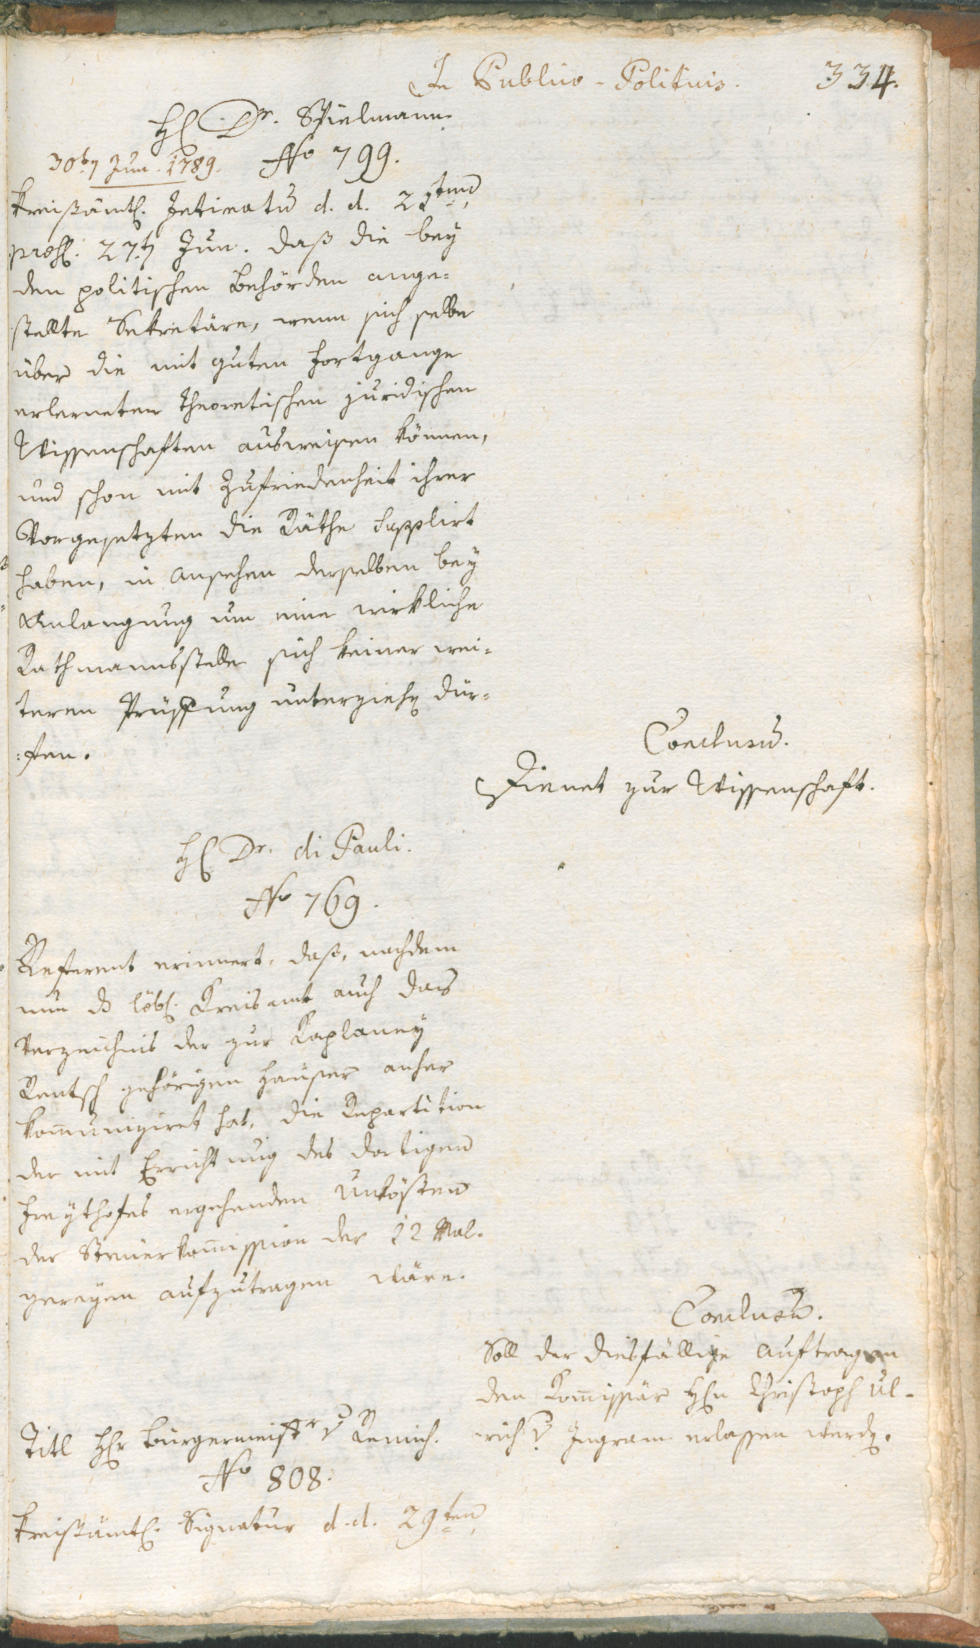 In Publico-Politicis. 334.
H. Dr. Spielmann.
30t Jun. 1789. No 799.
Kreißämtl. Intimatum d. d. 21ten
präs. 27t Jun. daß die bey
den politischen Behörden ange-
stellte Sekretäre, wenn sich selbe
über die mit guten Fortgange
erlerneten theoretischen juridischen
Wissenschaften ausweisen können,
und schon mit Zufriedenheit ihrer
Vorgesetzten die Räthe supplirt
haben, in Ansehen derselben bey
Anlangung um eine wirkliche
Rathmannsstelle sich keiner wei-
teren Prüffung unterziehen dür-
ften.
Conclusum.
Dienet zur Wissenschaft.
H. Dr. di Pauli.
No 769.
Referent erinnert, daß, nachdem
nun das löbl. Kreisamt auch das
Verzeichnis der zur Kaplaney
Rentsch gehörigen Häuser anher
kommuniziret hat, die Repartition
der mit Errichtung des dortigen
Freythofes ergehenden Unkösten
der Steuerkommission der 12 Mal-
greyen aufzutragen wäre.
Conclusum.
Soll der diesfällige Auftrag an
den Kommissär Hrn Christoph Ul-
rich v Ingram erlassen werden.
Titl Hr Bürgermeistr v Remich.
No 808.
Kreißämtl. Signatur d. d. 29ten